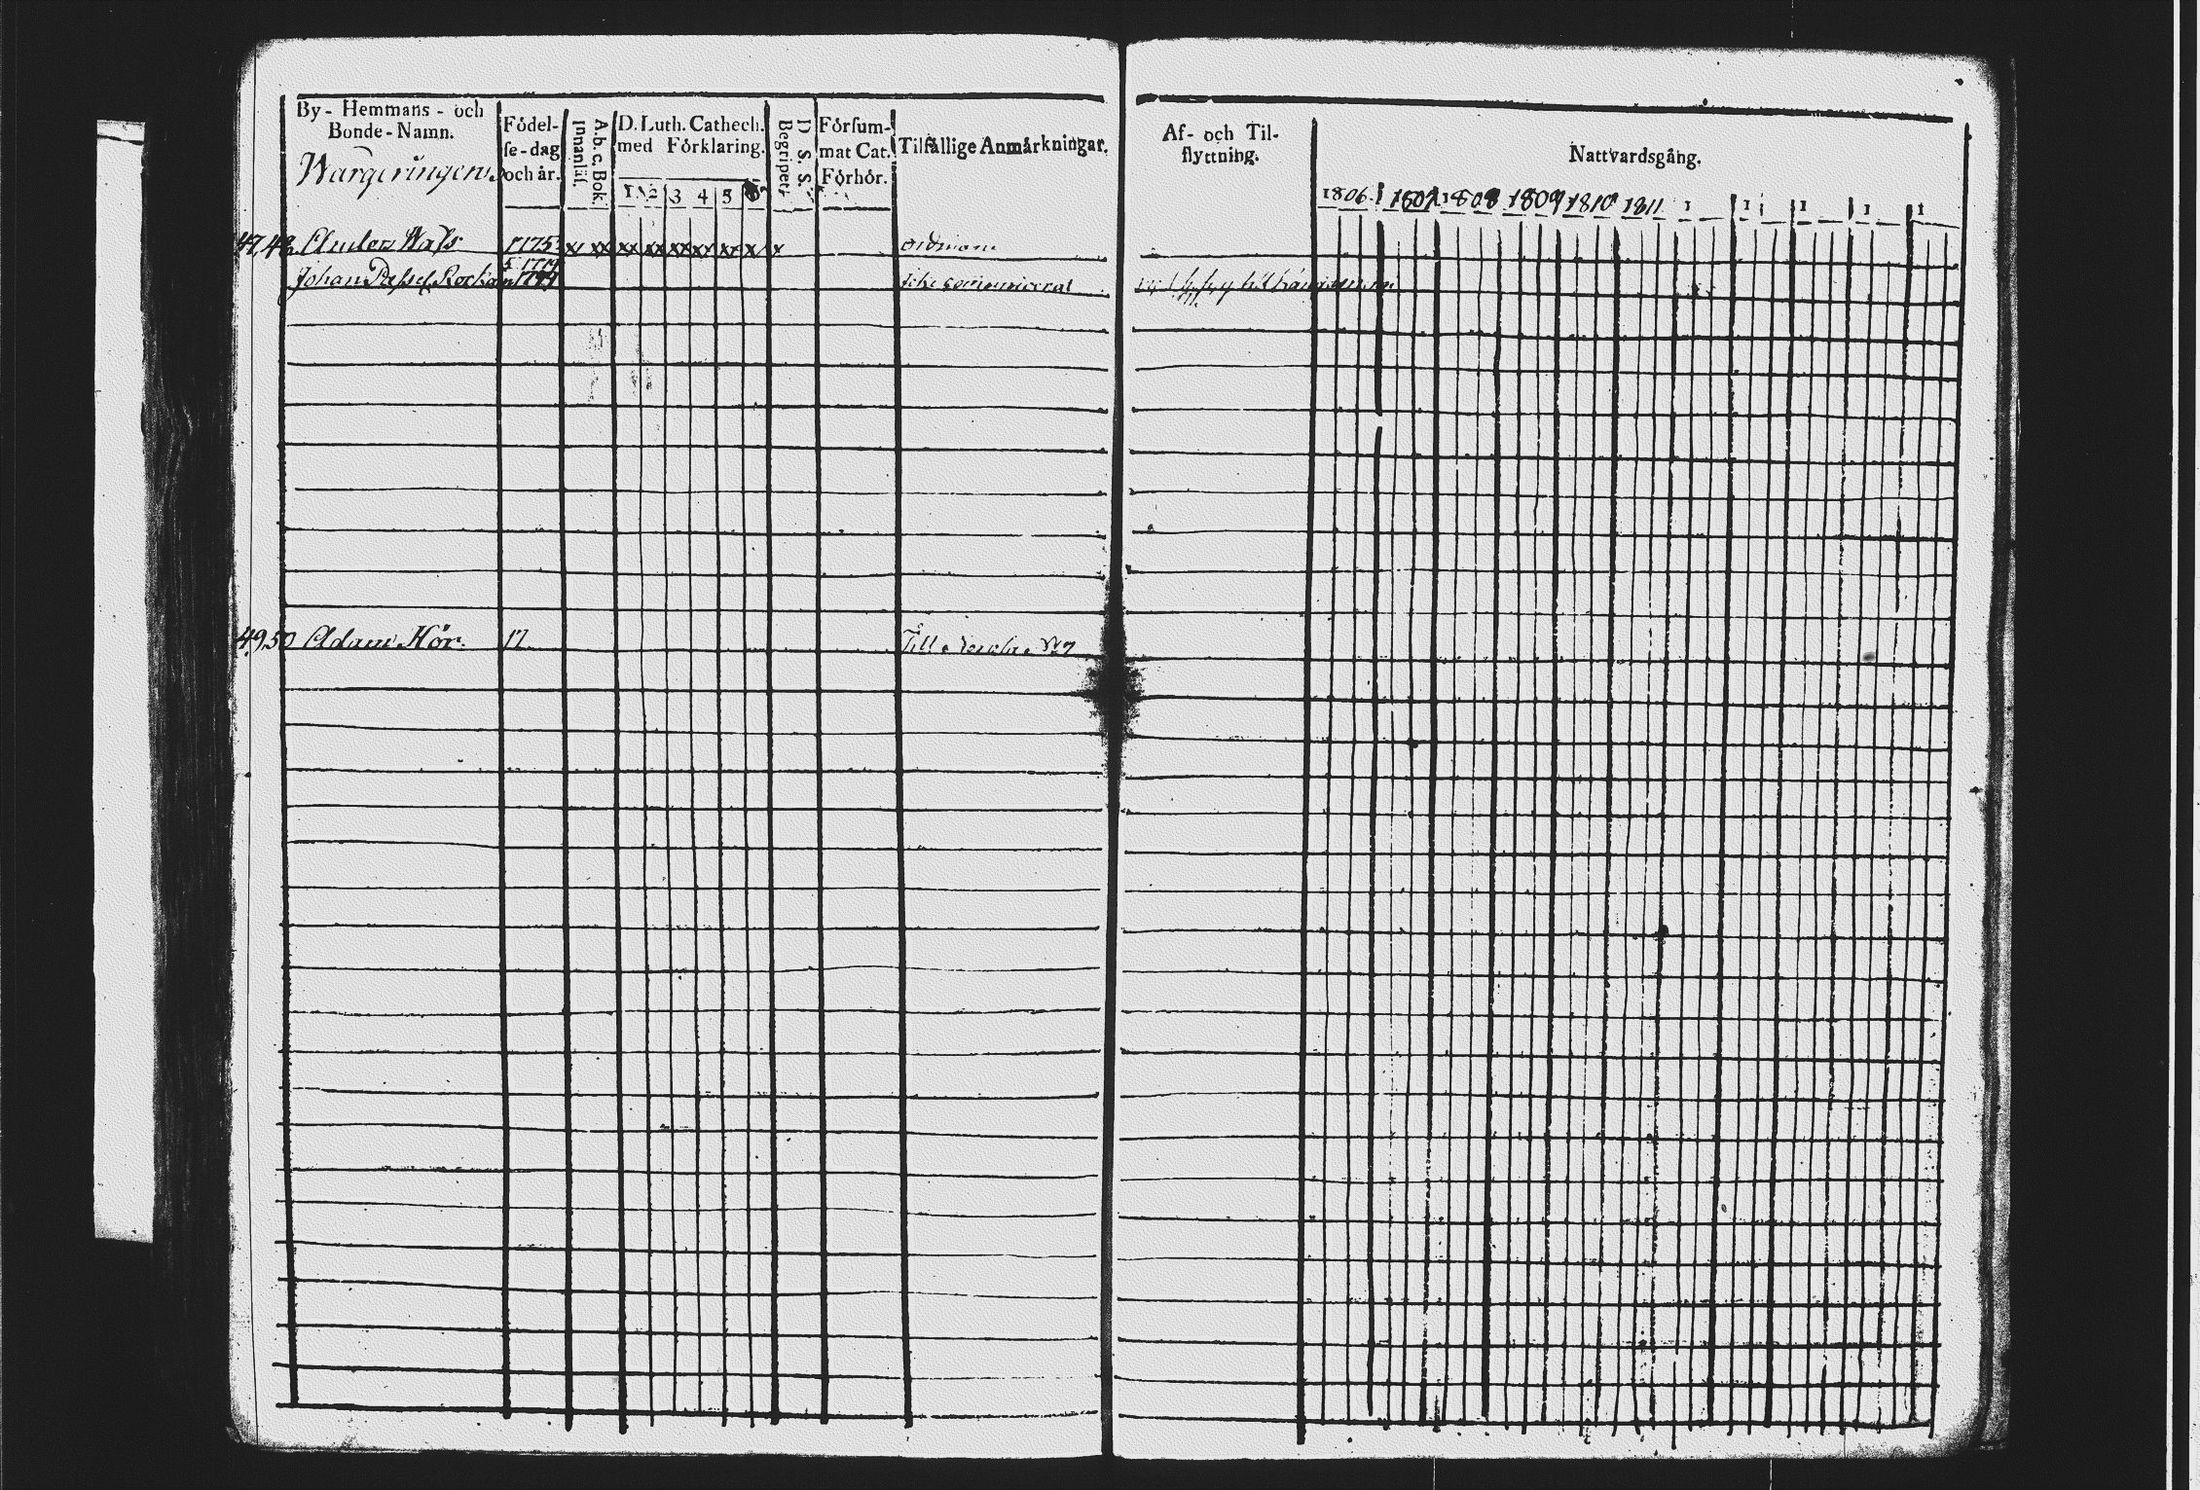 By- Hemmans- och
Bonde-Namn.
Wargeringen.
Födel-
se-dag
och år.
A. b. c. Bok
Innanläs.
D. Luth. Cathech.
med Förklaring.
1 2 3 4 5
D. S. S.
Begripet.
Försum-
mat Cat.
Förhör.
Tilfällige Anmärkningar.
Af- och Til-
flyttning.
Nattvardsgång.
1806. 1807 1808 1809 1810 1811 1 1 1 1 1
47,48 Anders 1775 x xx xx xx xx xx xx x x
Johan 1777 icke communicerat
49,50 Adam Hör. 17 Till